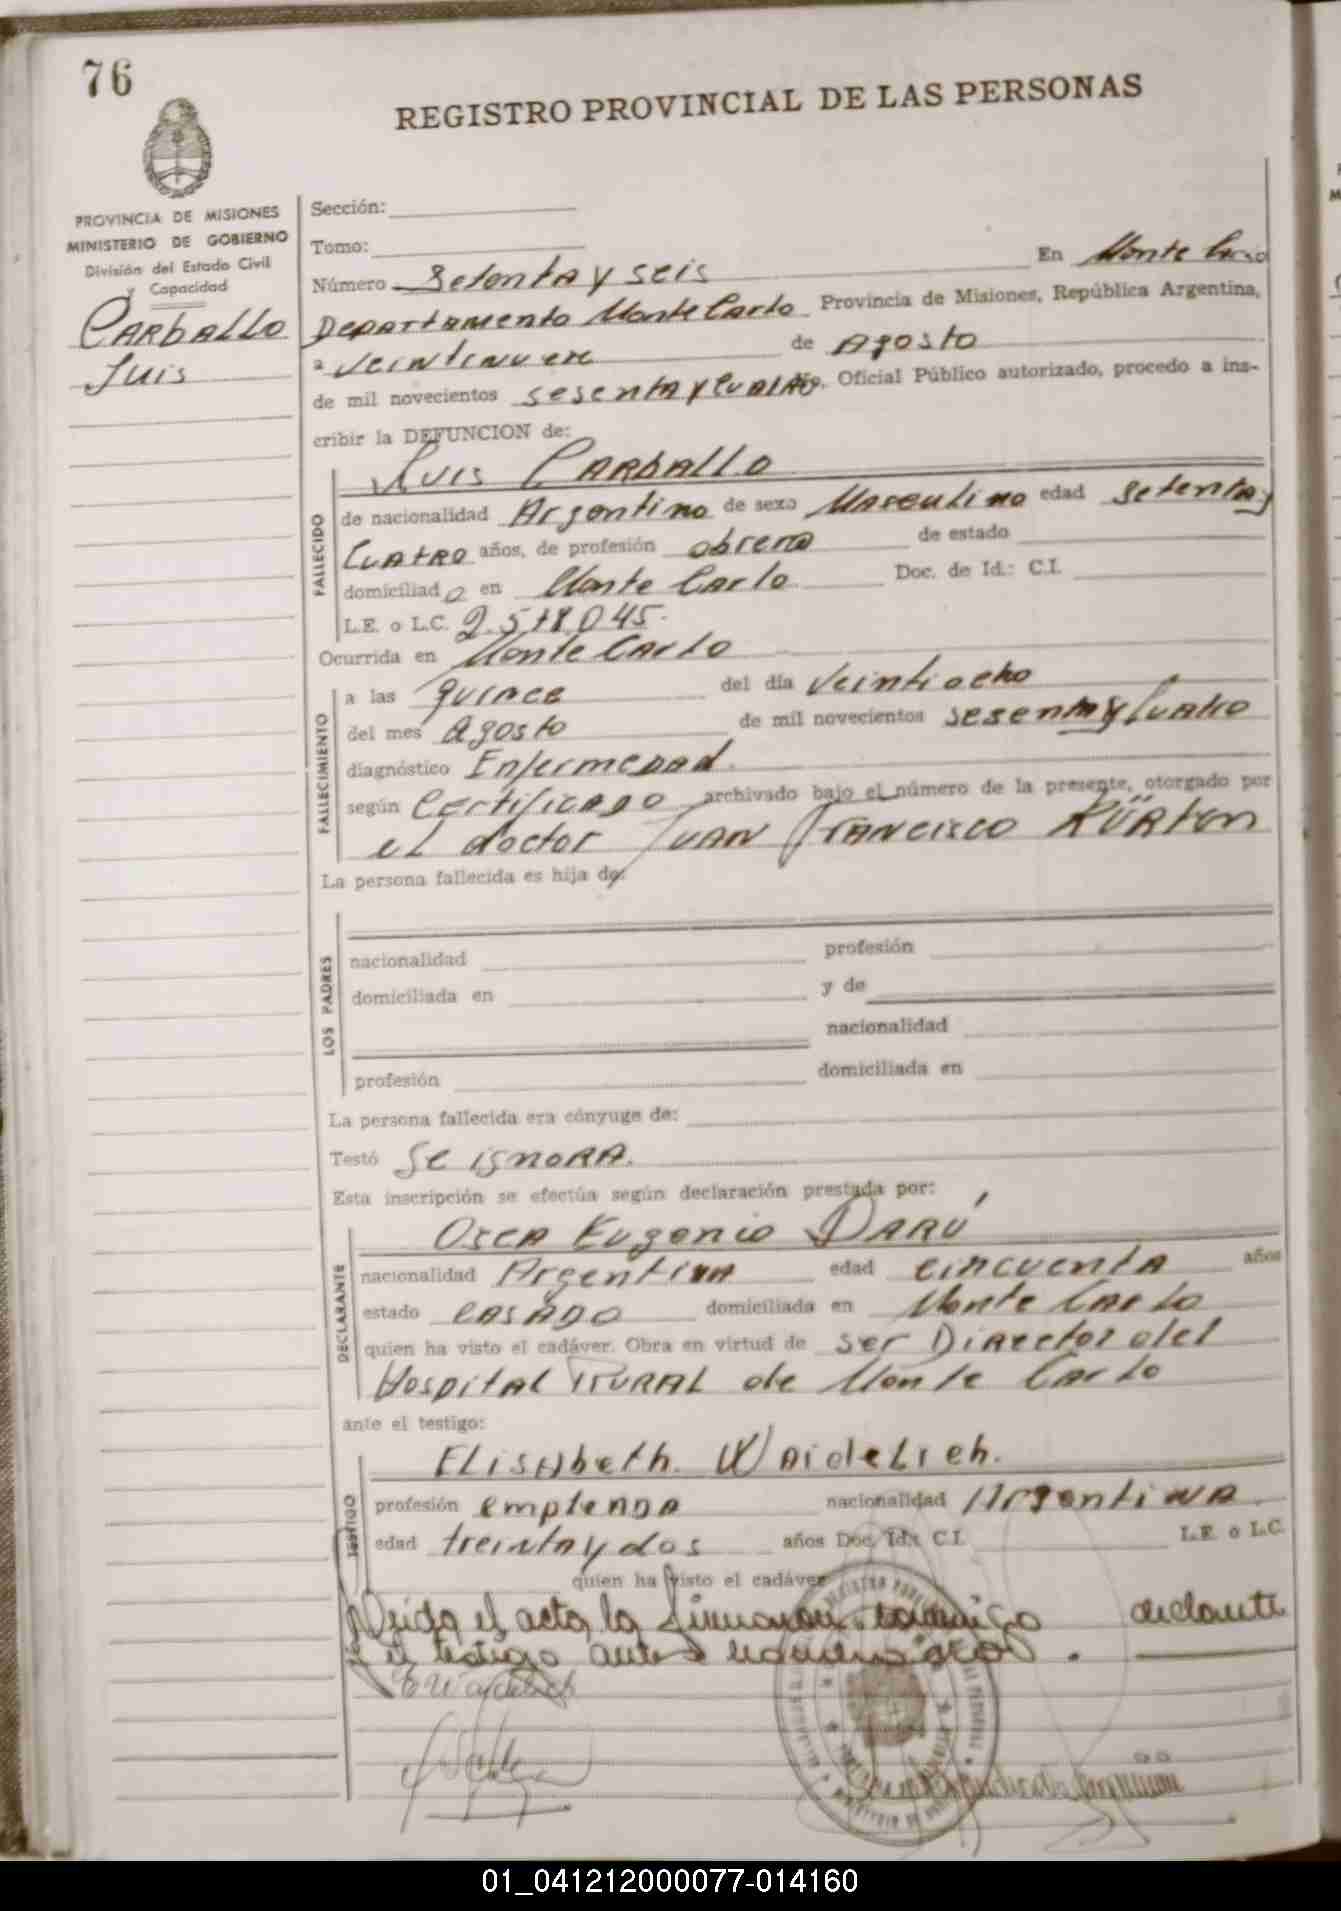 76
REGISTRO PROVINCIAL DE LAS PERSONAS
PROVINCIA DE MISIONES
MINISTERIO DE GOBIERNO
División del Estado Civil
y Capacidad
CARBALLO
Luis
Sección:
Tomo:
Número Setenta y seis En Monte Carlo
Departamento Monte Carlo Provincia de Misiones, República Argentina,
a veintinueve de Agosto
de mil novecientos sesenta y cuatro, Oficial Público autorizado, procedo a ins-
cribir la DEFUNCION de:
Luis CARBALLO
FALLECIDO
de nacionalidad Argentino de sexo Masculino edad setenta y
cuatro años, de profesión obrero de estado
domiciliado en Monte Carlo Doc. de Id.: C.I.
L.E. o L.C.
Ocurrida en Monte Carlo
FALLECIMIENTO
a las quince del día veintiocho
del mes Agosto de mil novecientos sesenta y cuatro
diagnóstico Enfermedad.
según certificado archivado bajo el número de la presente, otorgado por
el doctor Juan Francisco
La persona fallecida es hija de:
LOS PADRES
nacionalidad profesión
domiciliada en y de
nacionalidad
profesión domiciliada en
La persona fallecida era cónyuge de:
Testó Se ignora.
Esta inscripción se efectúa según declaración prestada por:
Osca Eugenio DARÚ
DECLARANTE
nacionalidad Argentina edad cincuenta años
estado casado domiciliada en Monte Carlo
quien ha visto el cadáver. Obra en virtud de ser Director del
Hospital RURAL de Monte Carlo
ante el testigo:
Elisabeth Waidelich.
TESTIGO
profesión empleada nacionalidad Argentina.
edad treinta y dos años Doc. Id.: C.I. L.E. o L.C.
quien ha visto el cadáver
Leida el acta la firmaron conmigo declante
el testigo ante
01_041212000077-014160